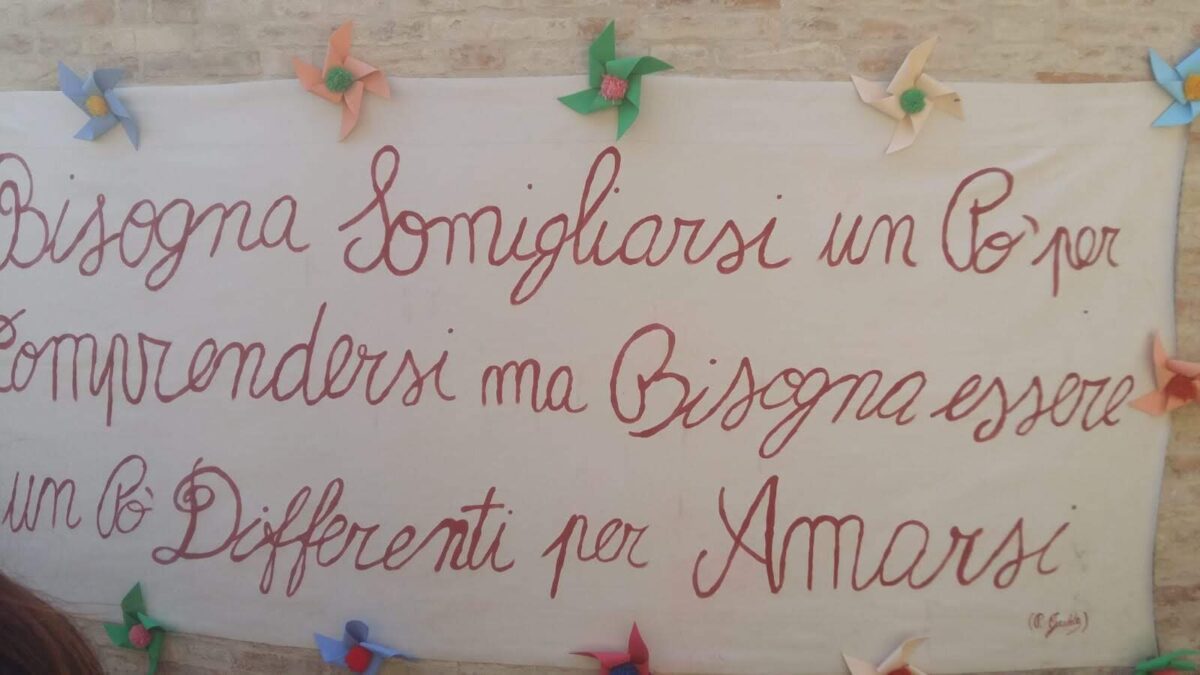 Bisogna Somigliarsi un Pò per
Comprendersi ma Bisogna essere
un Pò Differenti per Amarsi